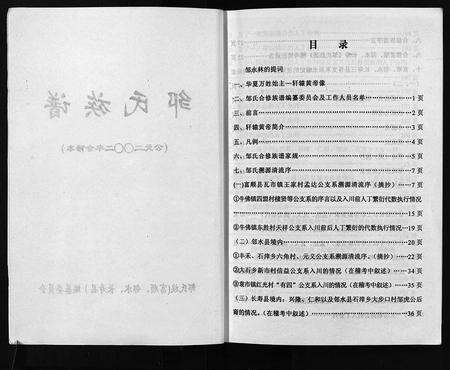 目 录
邹永林的提词
一、华夏万姓始主—轩辕黄帝像
二、邹氏合修族谱编纂委员会及工作人员名单 1 页
三、前言 2 页
四、轩辕黄帝简介 3 页
五、凡例 4 页
六、邹氏合修族谱家规 5 页
七、邹氏溯源清流序 7 页
(一)富顺县瓦市镇王家村孟达公支系溯源清流序、(摘抄) 7 页
①牛佛镇四盟村禧贤等公支系的序言以及入川前人丁繁衍代数执行情况
15 页
②牛佛镇东胜村天祥公支系入川前后人丁繁衍的代数执行情况 19 页
(二)邻水县境内 20 页
①丰禾、石滓乡六角村、元爻公支系溯源清流序、(摘抄) 22 页
②大石乡新市村信益公支系入川的情况(在稽考中叙述) 34 页
③袁市镇红光村“有四”公支系入川的情况(在稽考中叙述) 35 页
(三)长寿县境内、兴隆、仁和以及邻水县石滓乡大步口村邹虎公后
裔的情况、(在稽考中叙述) 36 页
邹氏族谱
(公元二〇〇二年合修本)
邹氏族(富顺、邻水、长寿县)编纂委员会